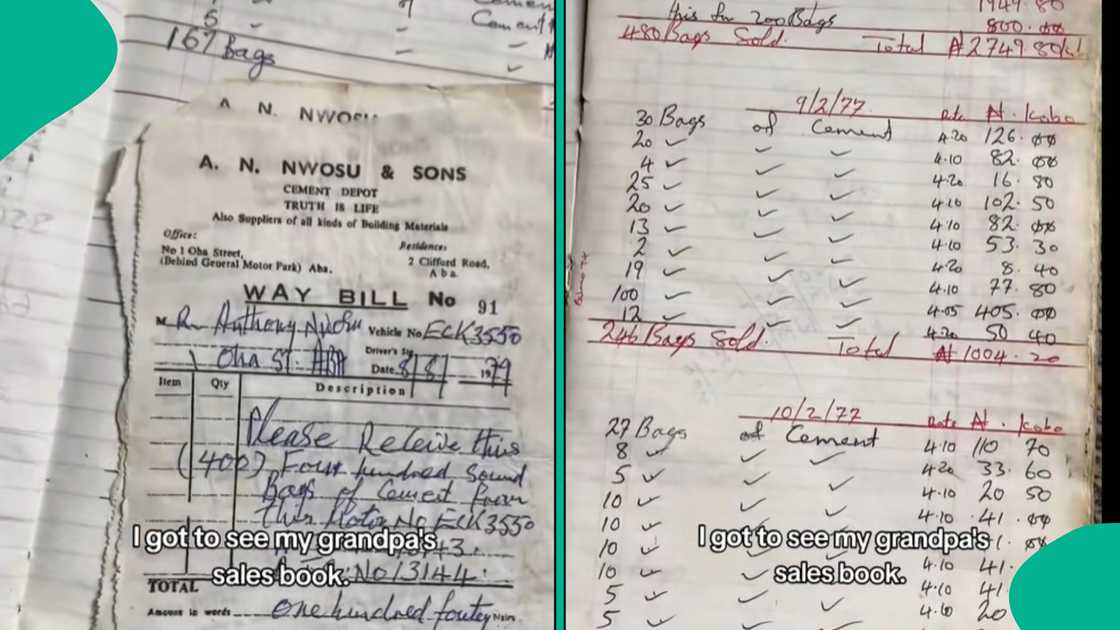 5 ✓
167 Bags
A. N. NWOSU
A. N. NWOSU & SONS
CEMENT DEPOT
TRUTH IS LIFE
Also Suppliers of all kinds of Building Materials
Office:
No 1 Oha Street,
(Behind General Motor Park) Aba.
Residence:
2 Clifford Road,
Aba.
WAY BILL No 91
M R. Anthony Nwosu Vehicle No ECK3550
Oha St. ABA Driver's
Date 8/8/ 1979
Item Qty Description
Please Receive this
(400) Four hundred Sound
Bags of Cement from
this Motor No ECK3550
43.
No 13144.
TOTAL
Amount in words one hundred foutey Naira
I got to see my grandpa's
sales book.
this for 200 Bags 1949.80
800.00
480 Bags Sold. Total ₦2749.80
9/2/77 Rate ₦. Kobo
30 Bags of Cement 4.20 126.00
20 ✓ ✓ ✓ 4.10 82.00
4 ✓ ✓ ✓ 4.20 16.80
25 ✓ ✓ ✓ 4.10 102.50
20 ✓ ✓ ✓ 4.10 82.00
13 ✓ ✓ ✓ 4.10 53.30
2 ✓ ✓ ✓ 4.20 8.40
19 ✓ ✓ ✓ 4.10 77.80
100 ✓ ✓ ✓ 4.05 405.00
12 ✓ ✓ ✓ 4.20 50 40
246 Bags Sold. Total ₦1004.20
10/2/77 Rate ₦. Kobo
27 Bags of Cement 4.10 110 70
8 ✓ ✓ ✓ 4.20 33.60
5 ✓ ✓ ✓ 4.10 20 50
10 ✓ ✓ ✓ 4.10 41.00
10 ✓ 1.00
10 ✓ 4.10 41.
5 ✓ ✓ 4.10 41
5 ✓ ✓ ✓ 4.10 20
I got to see my grandpa's
sales book.